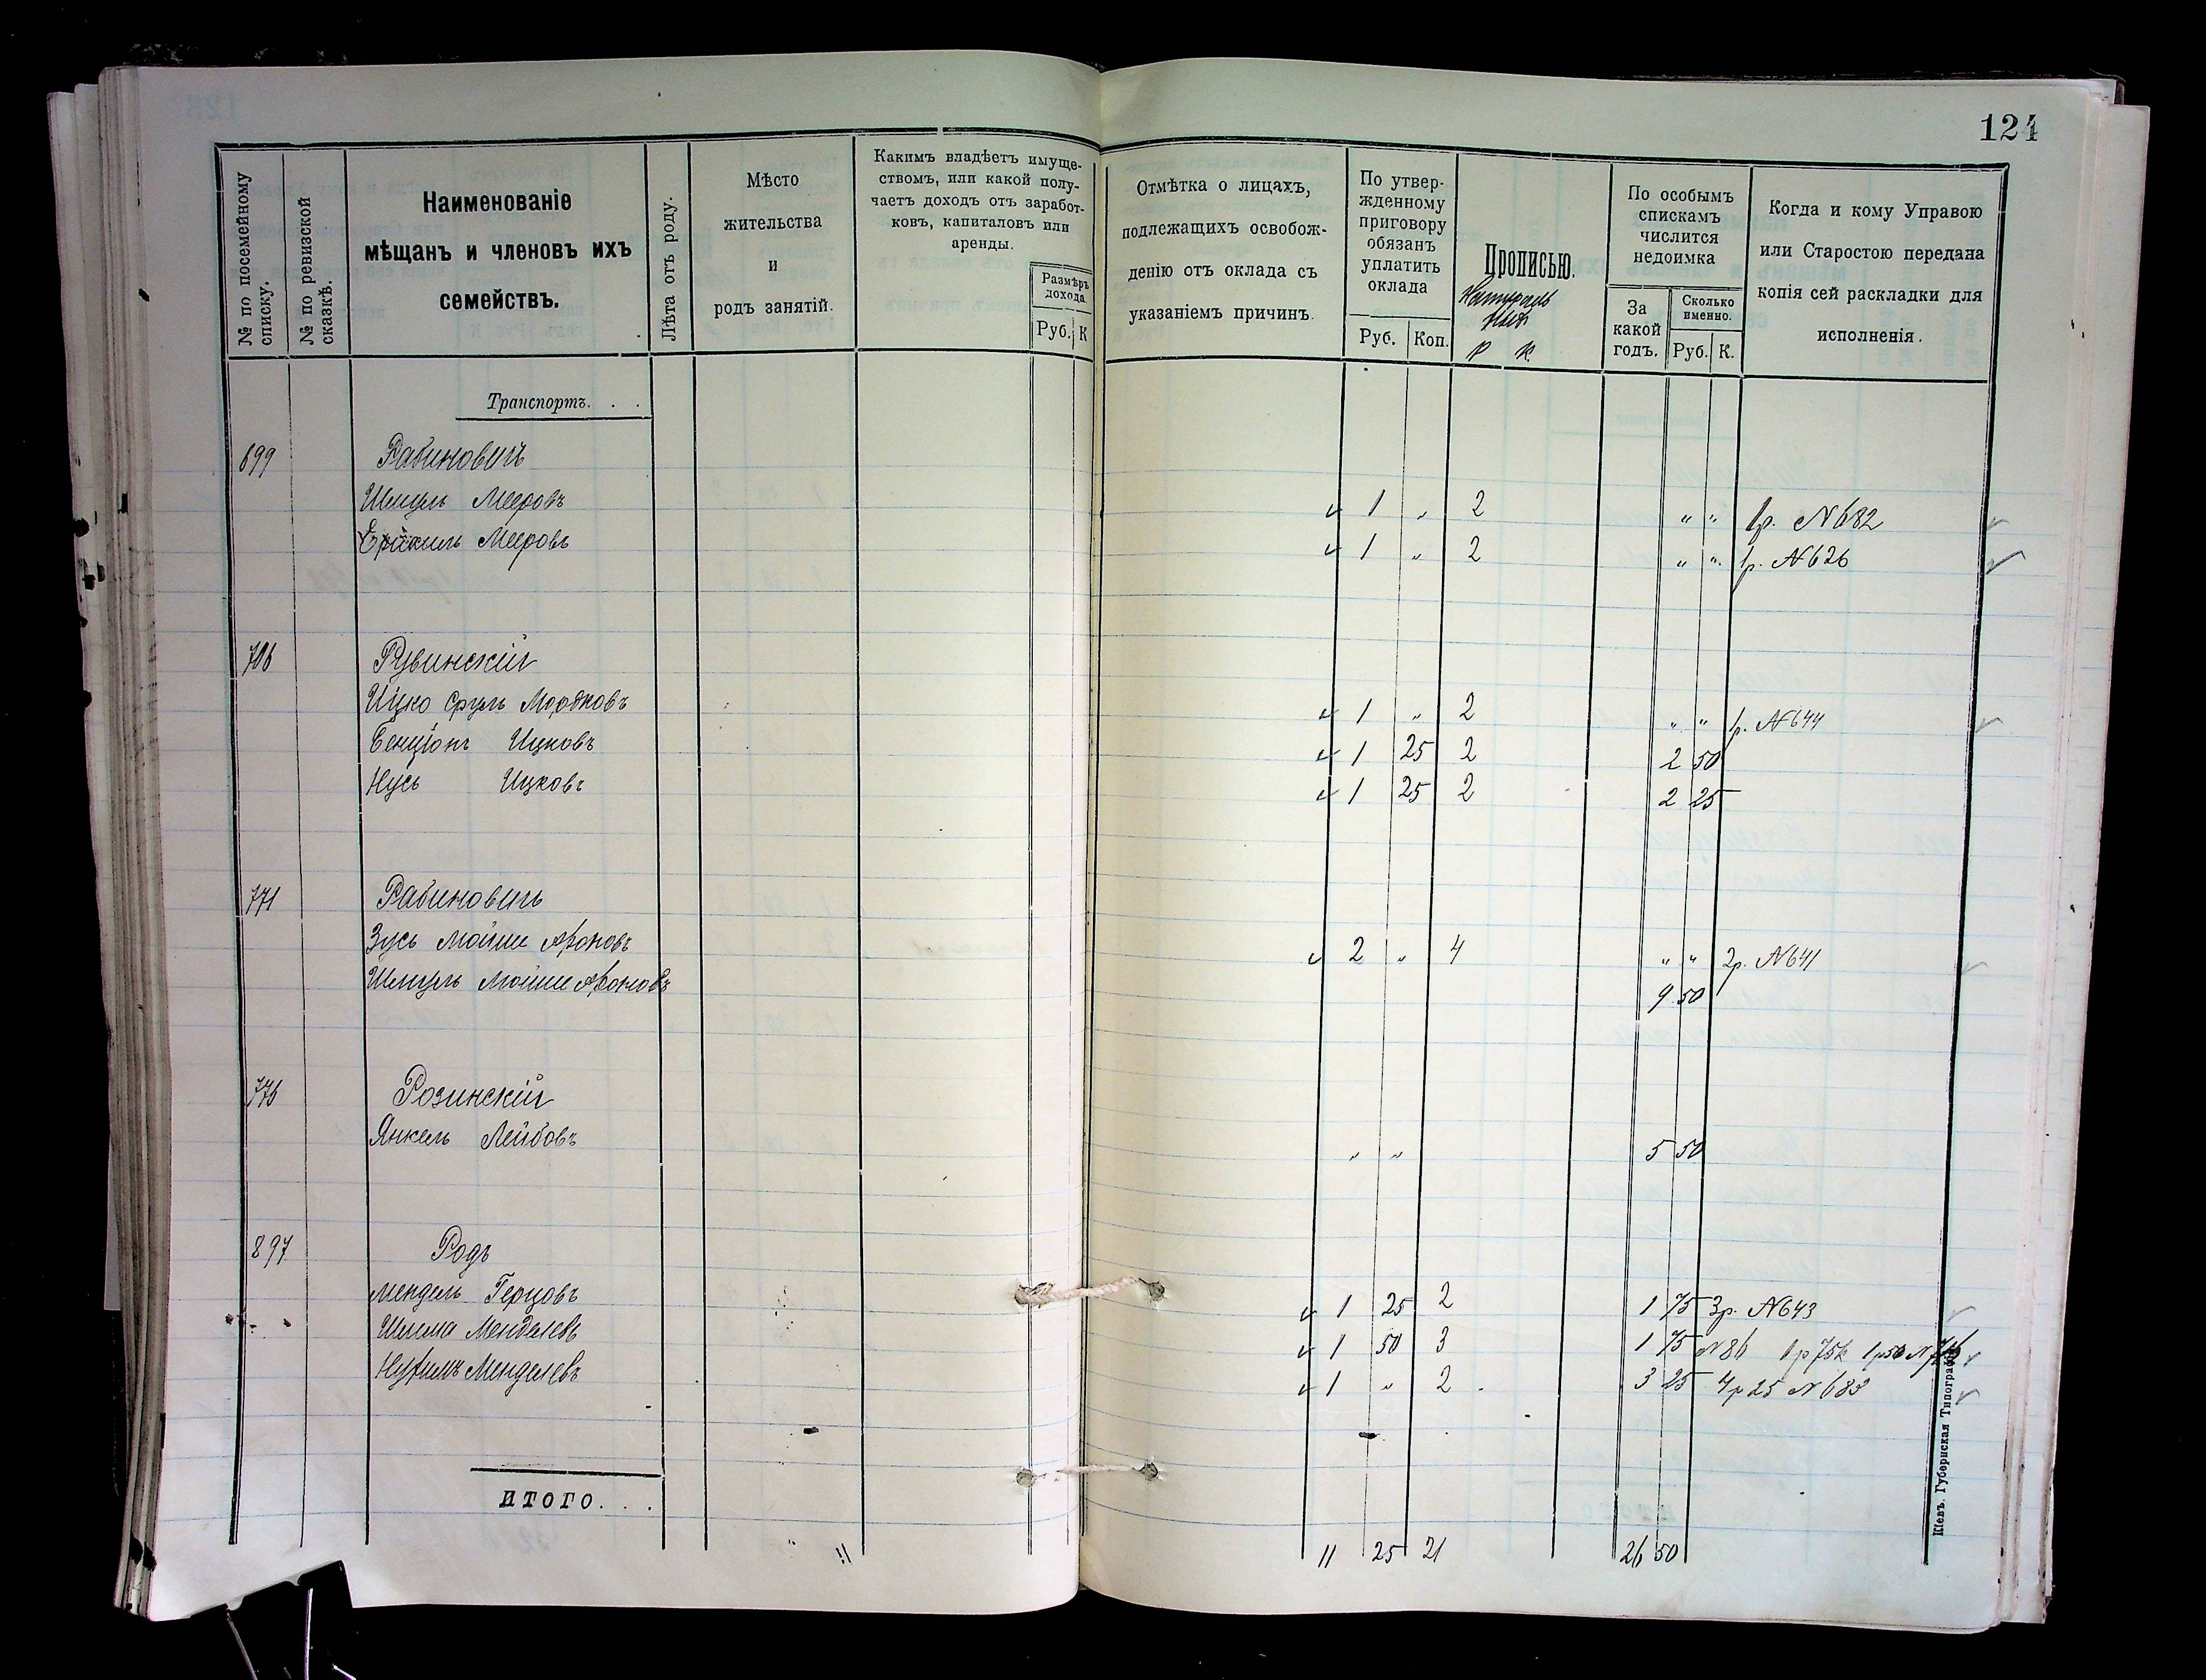 124
№ по посемейному списку.
№ по ревизской сказкѣ.
Наименованіе мѣщанъ и членовъ ихъ семействъ.
Лѣта отъ роду.
Мѣсто жительства и родъ занятій.
Какимъ владѣетъ имуще-
ствомъ, или какой полу-
чаетъ доходъ отъ заработ-
ковъ, капиталовъ или
аренды.
Размѣръ дохода.
Руб. К
Отмѣтка о лицахъ,
подлежащихъ освобож-
денію отъ оклада съ
указаніемъ причинъ.
По утвер-
жденному
приговору
обязанъ
уплатить
оклада
Руб. Коп.
Прописью.
Р К
По особымъ
спискамъ
числится
недоимка
За какой годъ.
Сколько именно.
Руб. К.
Когда и кому Управою
или Старостою передана
копія сей раскладки для
исполненія.
Транспортъ. . .
699 Рабиновичъ
Шмуль Мееровъ 1 " 2 " " 1р. N 682
Мееровъ 1 " 2 " " 1р. N 626
706 Рувинскій
Ицко Сруль Мордковъ 1 " 2 " " 1р. N 644
Бенціонъ Ицковъ 1 25 2 2 50
Нусь Ицковъ 1 25 2 2 25
771 Рабиновичъ
Зусь Мойше Ароновъ 2 " 4 " " 2р. N 641
Шмуль Мойше Ароновъ 9 50
776 Розинскій
Янкель Лейбовъ " " 5 50
897 Родъ
Мендель Герцовъ 1 25 2 1 75 3р. N 643
Шлема Менделевъ 1 50 3 1 75 N 86 1р 75к 1р50 N
Нухимъ Менделевъ 1 " 2 3 25 4р 25 N 683
ИТОГО. . .
11 25 21 26 50
Кіевъ. Губернская Типографія